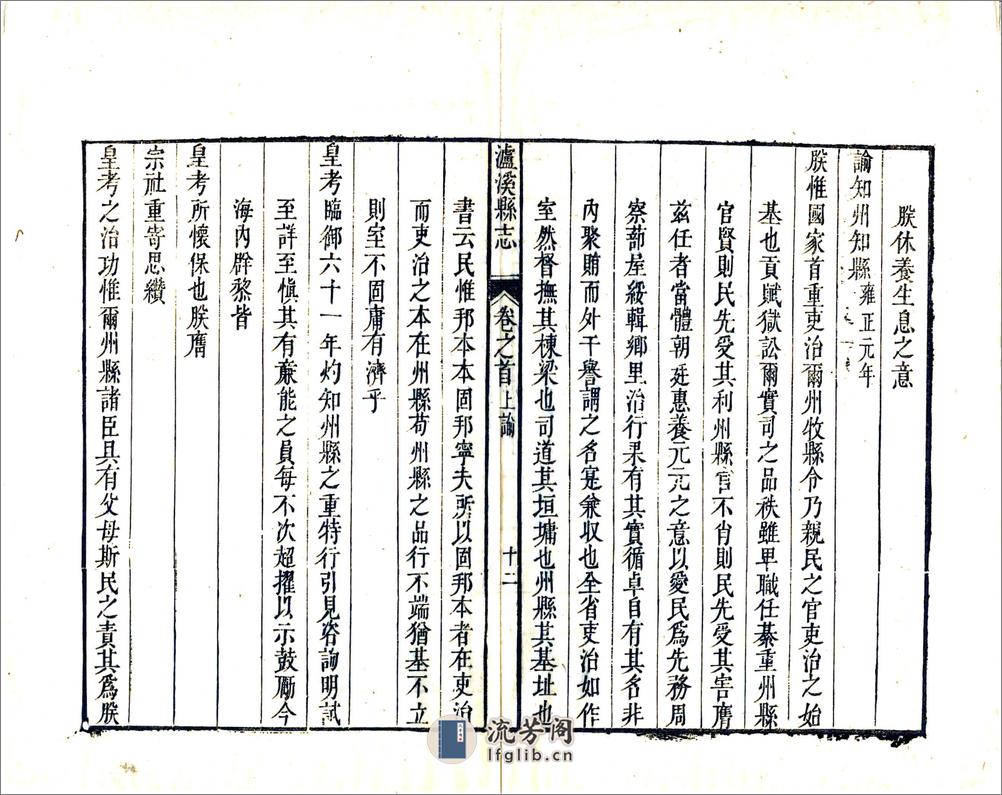 朕休養生息之意
諭知州知縣雍正元年
朕惟國家首重吏治爾州牧縣令乃親民之官吏治之始
基也貢賦獄訟爾實司之品秩雖卑職任綦重州縣
官賢則民先受其利州縣官不肖則民先受其害膺
茲任者當體朝廷惠養元元之意以愛民爲先務周
察蔀屋綏輯鄉里治行果有其實循卓自有其名非
內聚賄而外干譽謂之名寔兼収也全省吏治如作
室然督撫其棟梁也司道其垣墉也州縣其基址也
瀘溪縣志 卷之首 上諭 十二
書云民惟邦本本固邦寧夫所以固邦本者在吏治
而吏治之本在州縣苟州縣之品行不端猶基不立
則室不固庸有濟乎
皇考臨御六十一年灼知州縣之重特行引見咨詢明試
至詳至慎其有廉能之員每不次超擢以示鼓勵今
海內群黎皆
皇考所懷保也朕膺
宗社重寄思纘
皇考之治功惟爾州縣諸臣具有父母斯民之責其爲朕
流芳阁
lfglib.cn